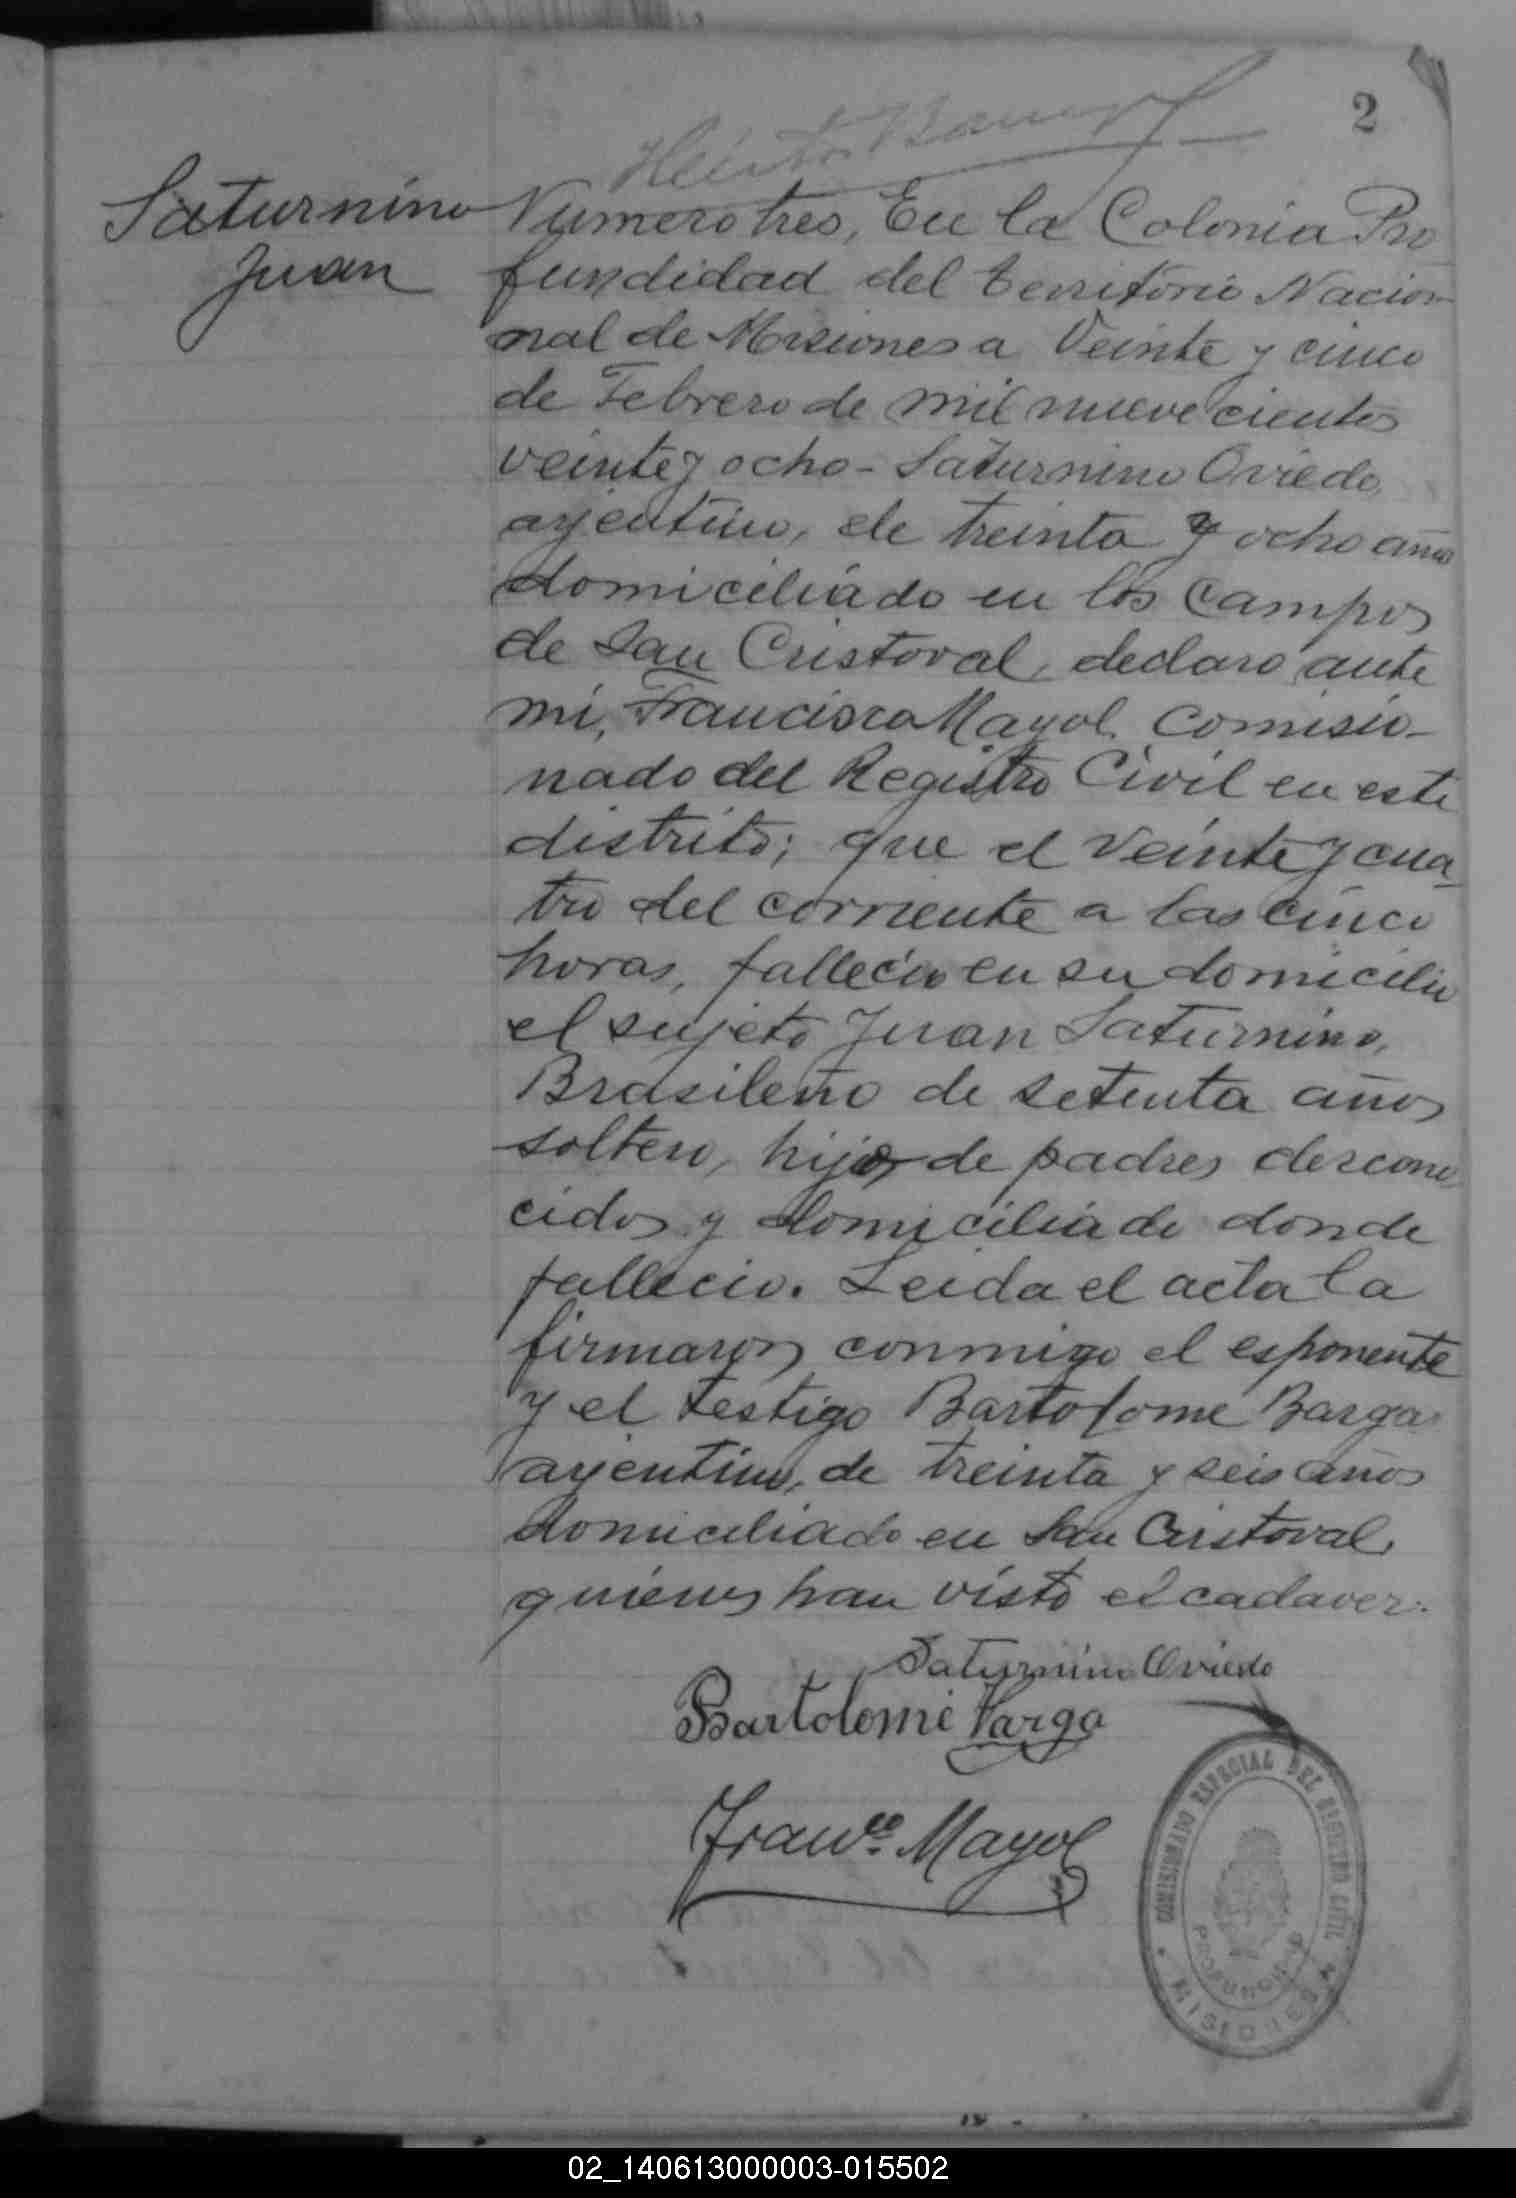 2
Saturnino
Juan
Numero tres, En la Colonia Pro
fundidad del territorio Nacion
nal de Misiones a Veinte y cinco
de Febrero de mil nuevecientos
veinte y ocho - Saturnino Oviedo,
arjentino, de treinta y ocho años
domiciliado en los Campos
de San Cristoval, declaro ante
mi, Francisco Mayol, Comisio-
nado del Registro Civil en este
distrito; que el veinte y cua-
tro del corriente a las cinco
horas, fallecio en su domicilio
el sujeto Juan Saturnino,
Brasileño de setenta años
soltero, hijo de padres descono
cidos y domiciliado donde
fallecio. Leida el acta la
firmaron conmigo el esponente
y el testigo Bartolome Barga
arjentino, de treinta y seis años
domiciliado en San Cristoval,
quienes han visto el cadaver.
Saturnino Oviedo
Bartolome Varga
Franco. Mayol
COMISIONADO ESPECIAL DEL REGISTRO CIVIL
PROFUNDIDAD
MISIONES
02_140613000003-015502